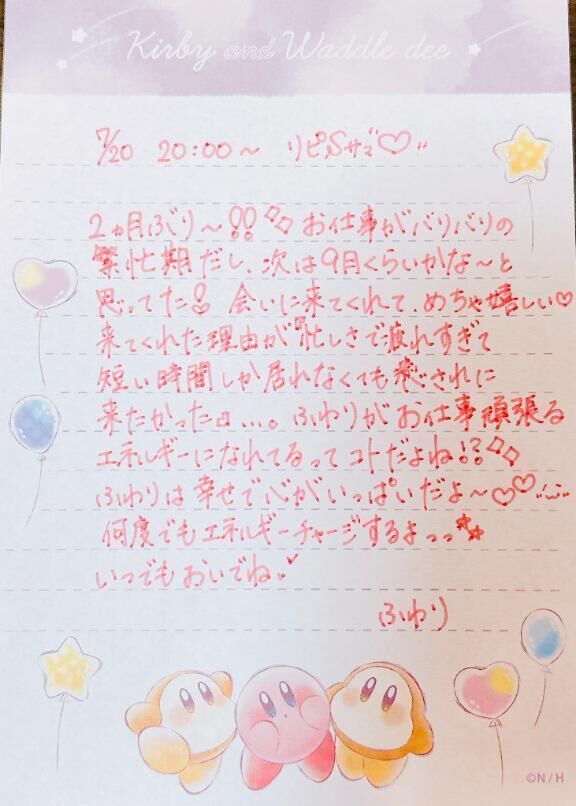 Kirby and Waddle dee
7/20 20:00〜 リピSサマ♡
2ヵ月ぶり〜!! お仕事がバリバリの
繁忙期だし、次は9月くらいかな〜と
思ってた! 会いに来てくれて、めちゃ嬉しい♡
来てくれた理由が『忙しさで疲れすぎて
短い時間しか居れなくても癒されに
来たかった』…。ふわりがお仕事頑張る
エネルギーになれてるってコトだよね!?
ふわりは幸せで心がいっぱいだよ〜♡♡
何度でもエネルギーチャージするよっっ
いつでもおいでね♪
ふわり
©N/H